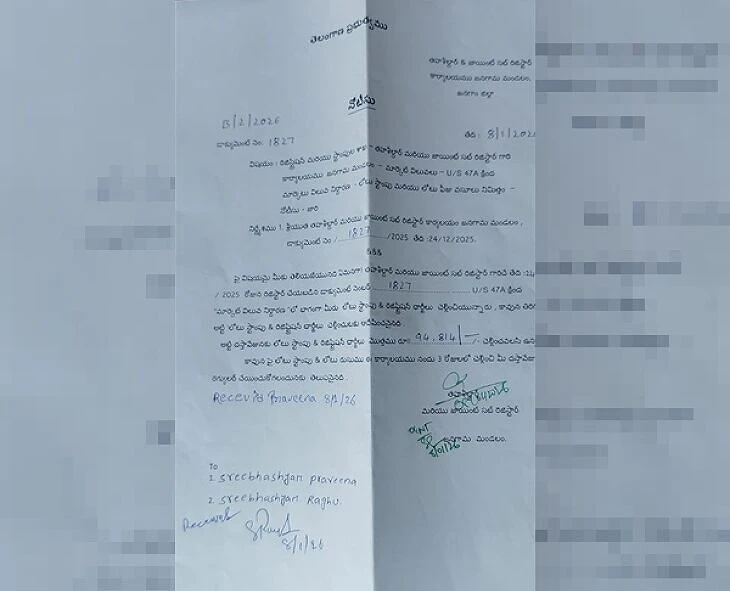 తెలంగాణ ప్రభుత్వము
తహశీల్దార్ & జాయింట్ సబ్ రిజిస్ట్రార్
కార్యాలయము జనగామ మండలం,
జనగాం జిల్లా
నోటీసు
B/2/2026
డాక్యుమెంట్ నం: 1827
తేది: 8/1/202
విషయం: రిజిస్ట్రేషన్ మరియు స్టాంపుల శాఖ - తహశీల్దార్ మరియు జాయింట్ సబ్ రిజిస్ట్రార్ గారి
కార్యాలయము జనగామ మండలం - మార్కెట్ విలువలు - U/S 47A క్రింద
మార్కెట్టు విలువ నిర్ధారణ - లోటు స్టాంపు మరియు లోటు ఫీజు వసూలు నిమిత్తం -
నోటీసు - జారి
నిర్దేశము 1. శ్రీయుత తహశీల్దార్ మరియు జాయింట్ సబ్ రిజిస్ట్రార్ కార్యాలయం జనగామ మండలం,
డాక్యుమెంట్ నం / 1827 /2025 తేది :24/12/2025.
పై విషయమై మీకు తెలియజేయునది ఏమనగా తహశీల్దార్ మరియు జాయింట్ సబ్ రిజిస్ట్రార్ గారిచే తేది:
/ 2025 రోజున రిజిస్టర్ చేయబడిన డాక్యుమెంట్ నంబర్ 1827 U/S 47A క్రింద
"మార్కెట్ విలువ నిర్ధారణ "లో భాగంగా మీరు లోటు స్టాంపు & రిజిస్ట్రేషన్ ఛార్జీలు చెల్లించియున్నారు, కావున
అట్టి లోటు స్టాంపు & రిజిస్ట్రేషన్ ఛార్జీలు చెల్లించుటకు ఆదేశించనైనది.
అట్టి దస్తావేజునకు లోటు స్టాంపు & రిజిస్ట్రేషన్ ఛార్జీలు మొత్తము రూ: 94,814/- చెల్లించవలసి
కావున పై లోటు స్టాంపు & లోటు రుసుము ఈ కార్యాలయము నందు 3 రోజులలో చెల్లించి మీ
రెగ్యులర్ చేయించుకోగలందులకు తెలుపనైనది.
Recevid Praveena 8/1/26
తహశీల్దార్
మరియు జాయింట్ సబ్ రిజిస్ట్రార్
జనగామ మండలం.
To
1. Sreebhashyam praveena
2. Sreebhashyam Raghu.
Received
8/1/26